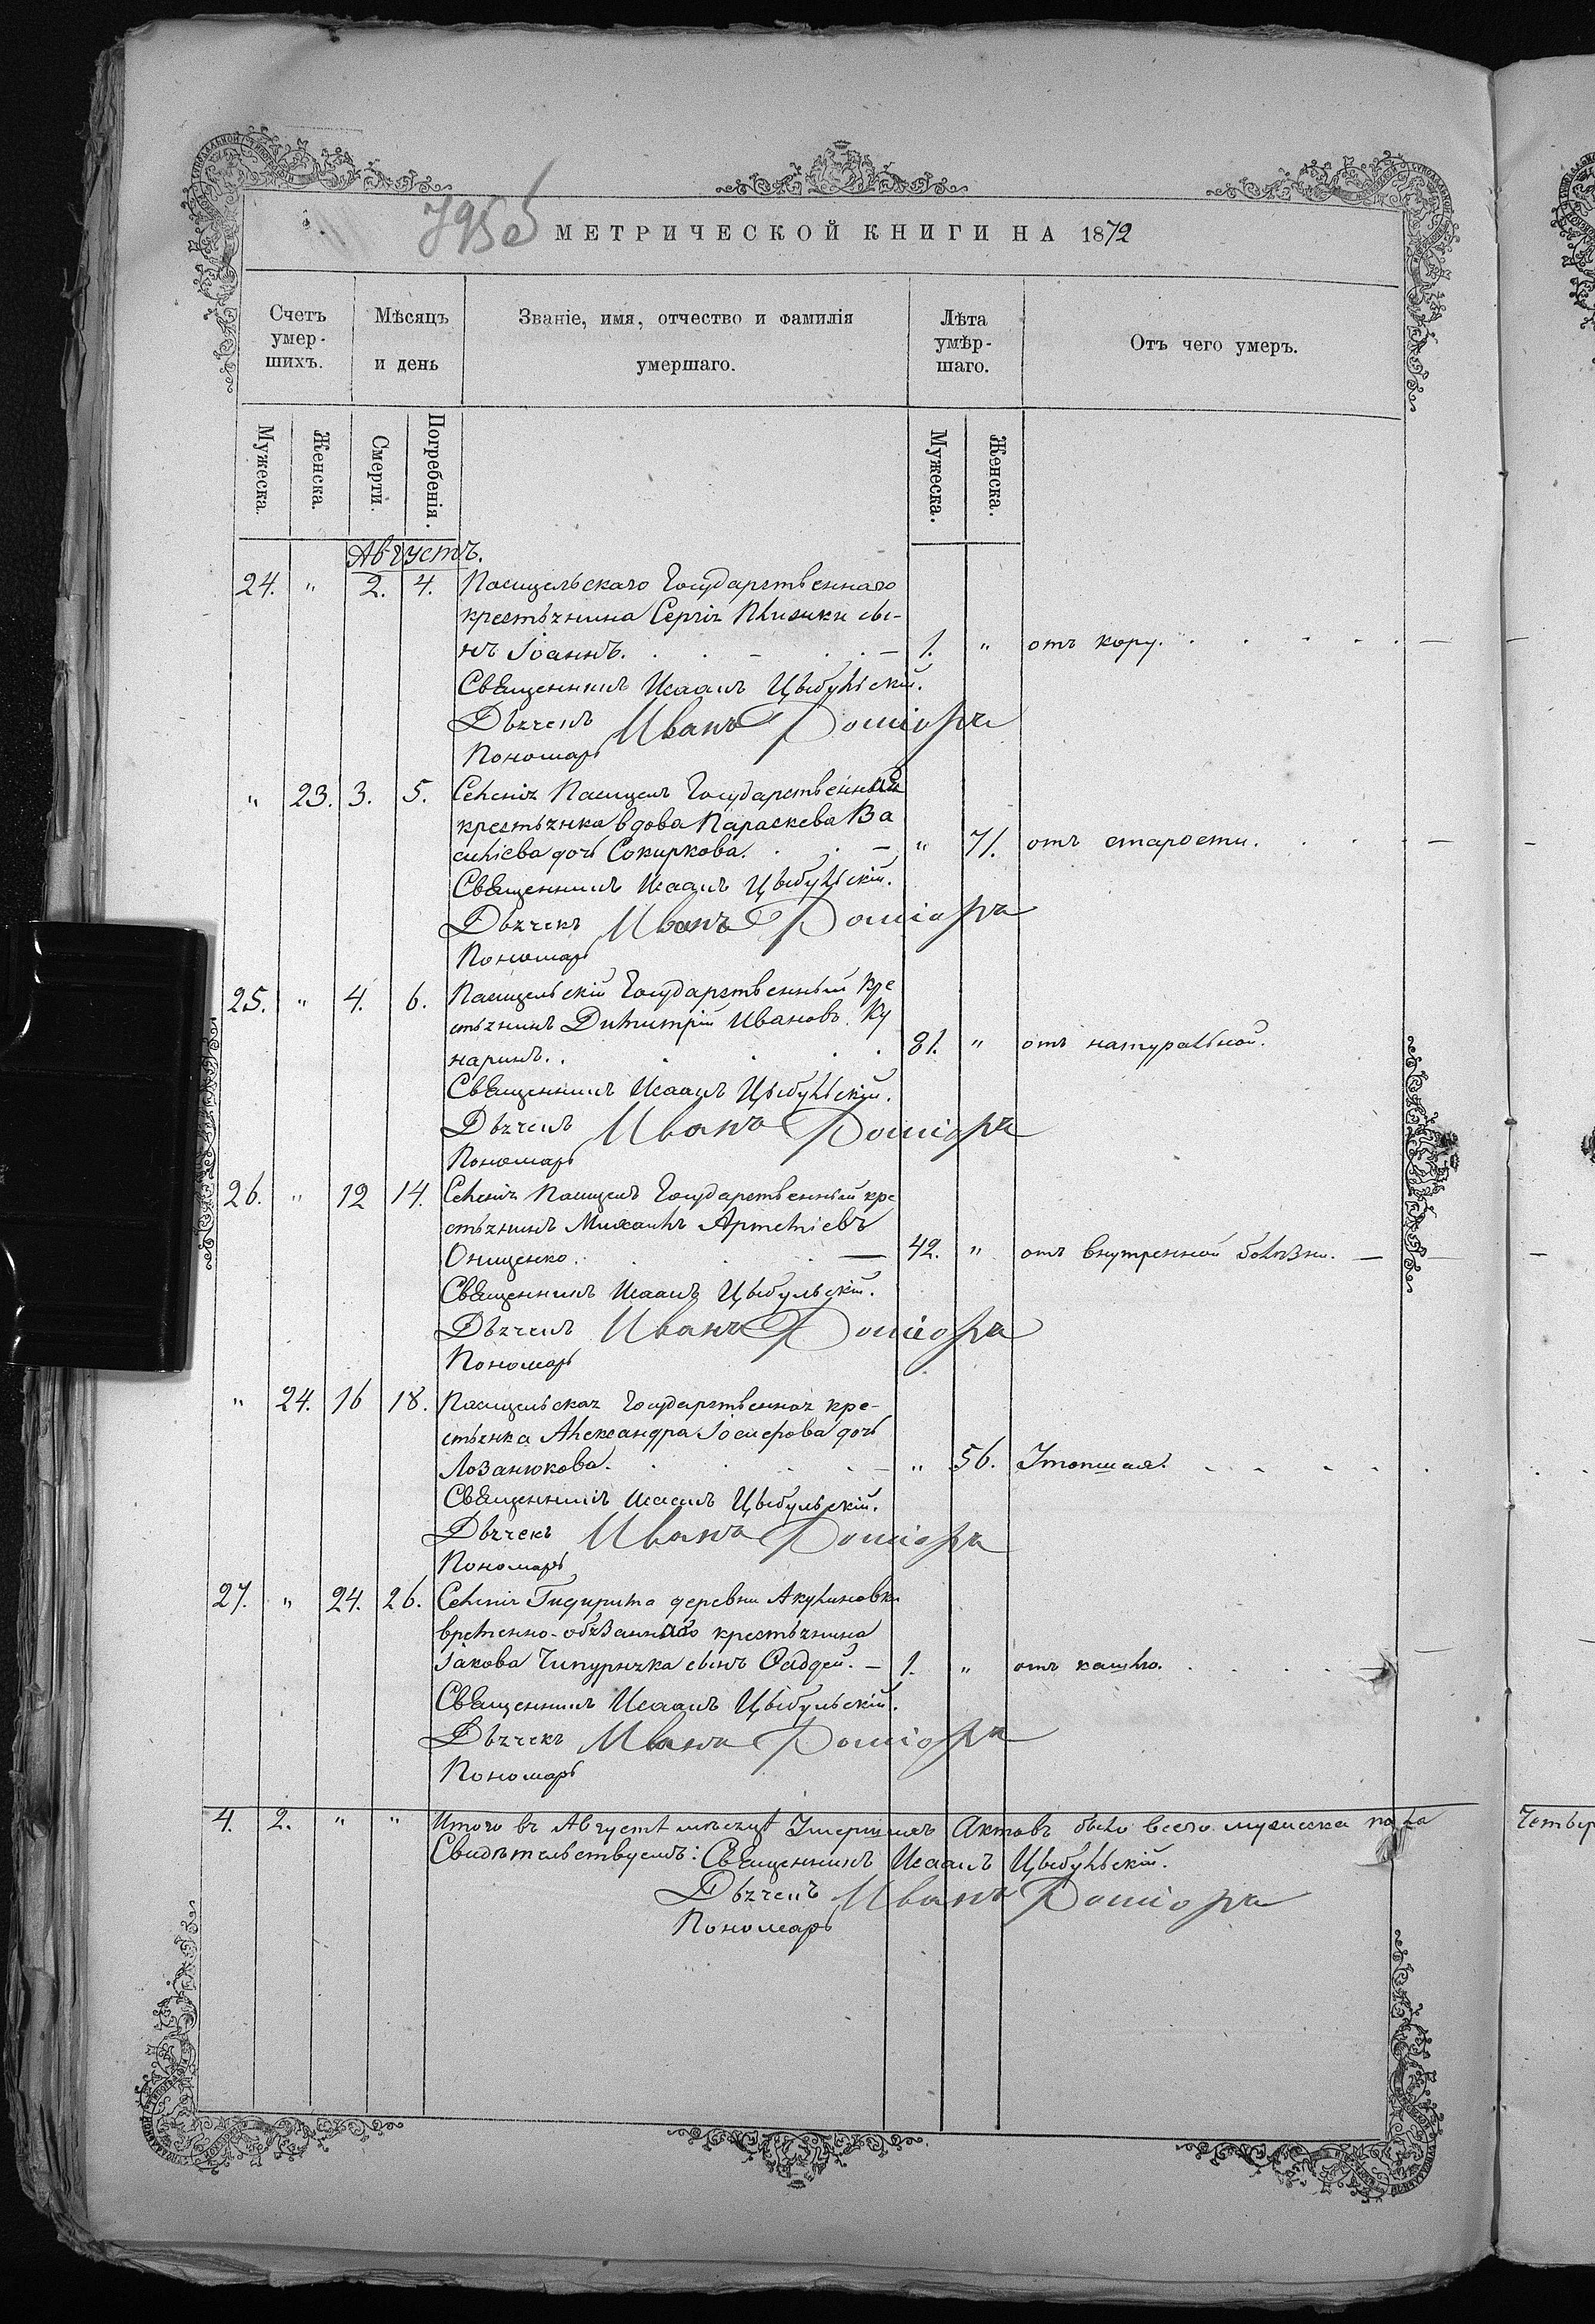 МЕТРИЧЕСКОЙ КНИГИ НА 1872
Счетъ умер- шихъ.
Мѣсяцъ и день
Званіе, имя, отчество и фамилія умершаго.
Лѣта умѣр- шаго.
Отъ чего умеръ.
Мужеска. Женска. Смерти. Погребенія. Мужеска. Женска.
Августъ.
24. " 2. 4. Пасицельскаго Государственнаго
крестьянина Сергія сы-
нъ Іоаннъ. 1. " отъ кору.
Священникъ Исаакъ Цыбульскій.
Дьячекъ Иванъ
Пономарь
" 23. 3. 5. Селенія Пасицелъ Государственная
крестьянка вдова Параскева Ва
силіева дочь Сокиркова. " 71. отъ старости.
Священникъ Исаакъ Цыбульскій.
Дьячекъ Иванъ
Пономарь
25. " 4. 6. Пасицельскій Государственный кре
стьянинъ Димитрій Ивановъ Ку
наринъ. 81. " отъ натуральной.
Священникъ Исаакъ Цыбульскій.
Дьячекъ Иванъ
Пономарь
26. " 12 14. Селенія Пасицелъ Государственный кре
стьянинъ Михаилъ Артеміевъ
Онищенко. 42. " отъ внутренной болѣзни.
Священникъ Исаакъ Цыбульскій.
Дьячекъ Иванъ
Пономарь
" 24. 16 18. Пасицельская Государственная кре-
стьянка Александра Іосифова дочь
Лозанюкова. " 56. Утопшая.
Священникъ Исаакъ Цыбульскій.
Дьячекъ Иванъ
Пономарь
27. " 24. 26. Селенія Гидирима деревни Акулиновки
временно-обязаннаго крестьянина
Іакова Чипурняка сынъ Фаддей. 1. " отъ кашлю.
Священникъ Исаакъ Цыбульскій.
Дьячекъ Иванъ
Пономарь
4. 2. " " Итого въ Августѣ мѣсяцѣ Умершихъ Актовъ было всего мужеска пола
Свидѣтельствуемъ: Священникъ Исаакъ Цыбульскій.
Дьячекъ Иванъ
Пономарь